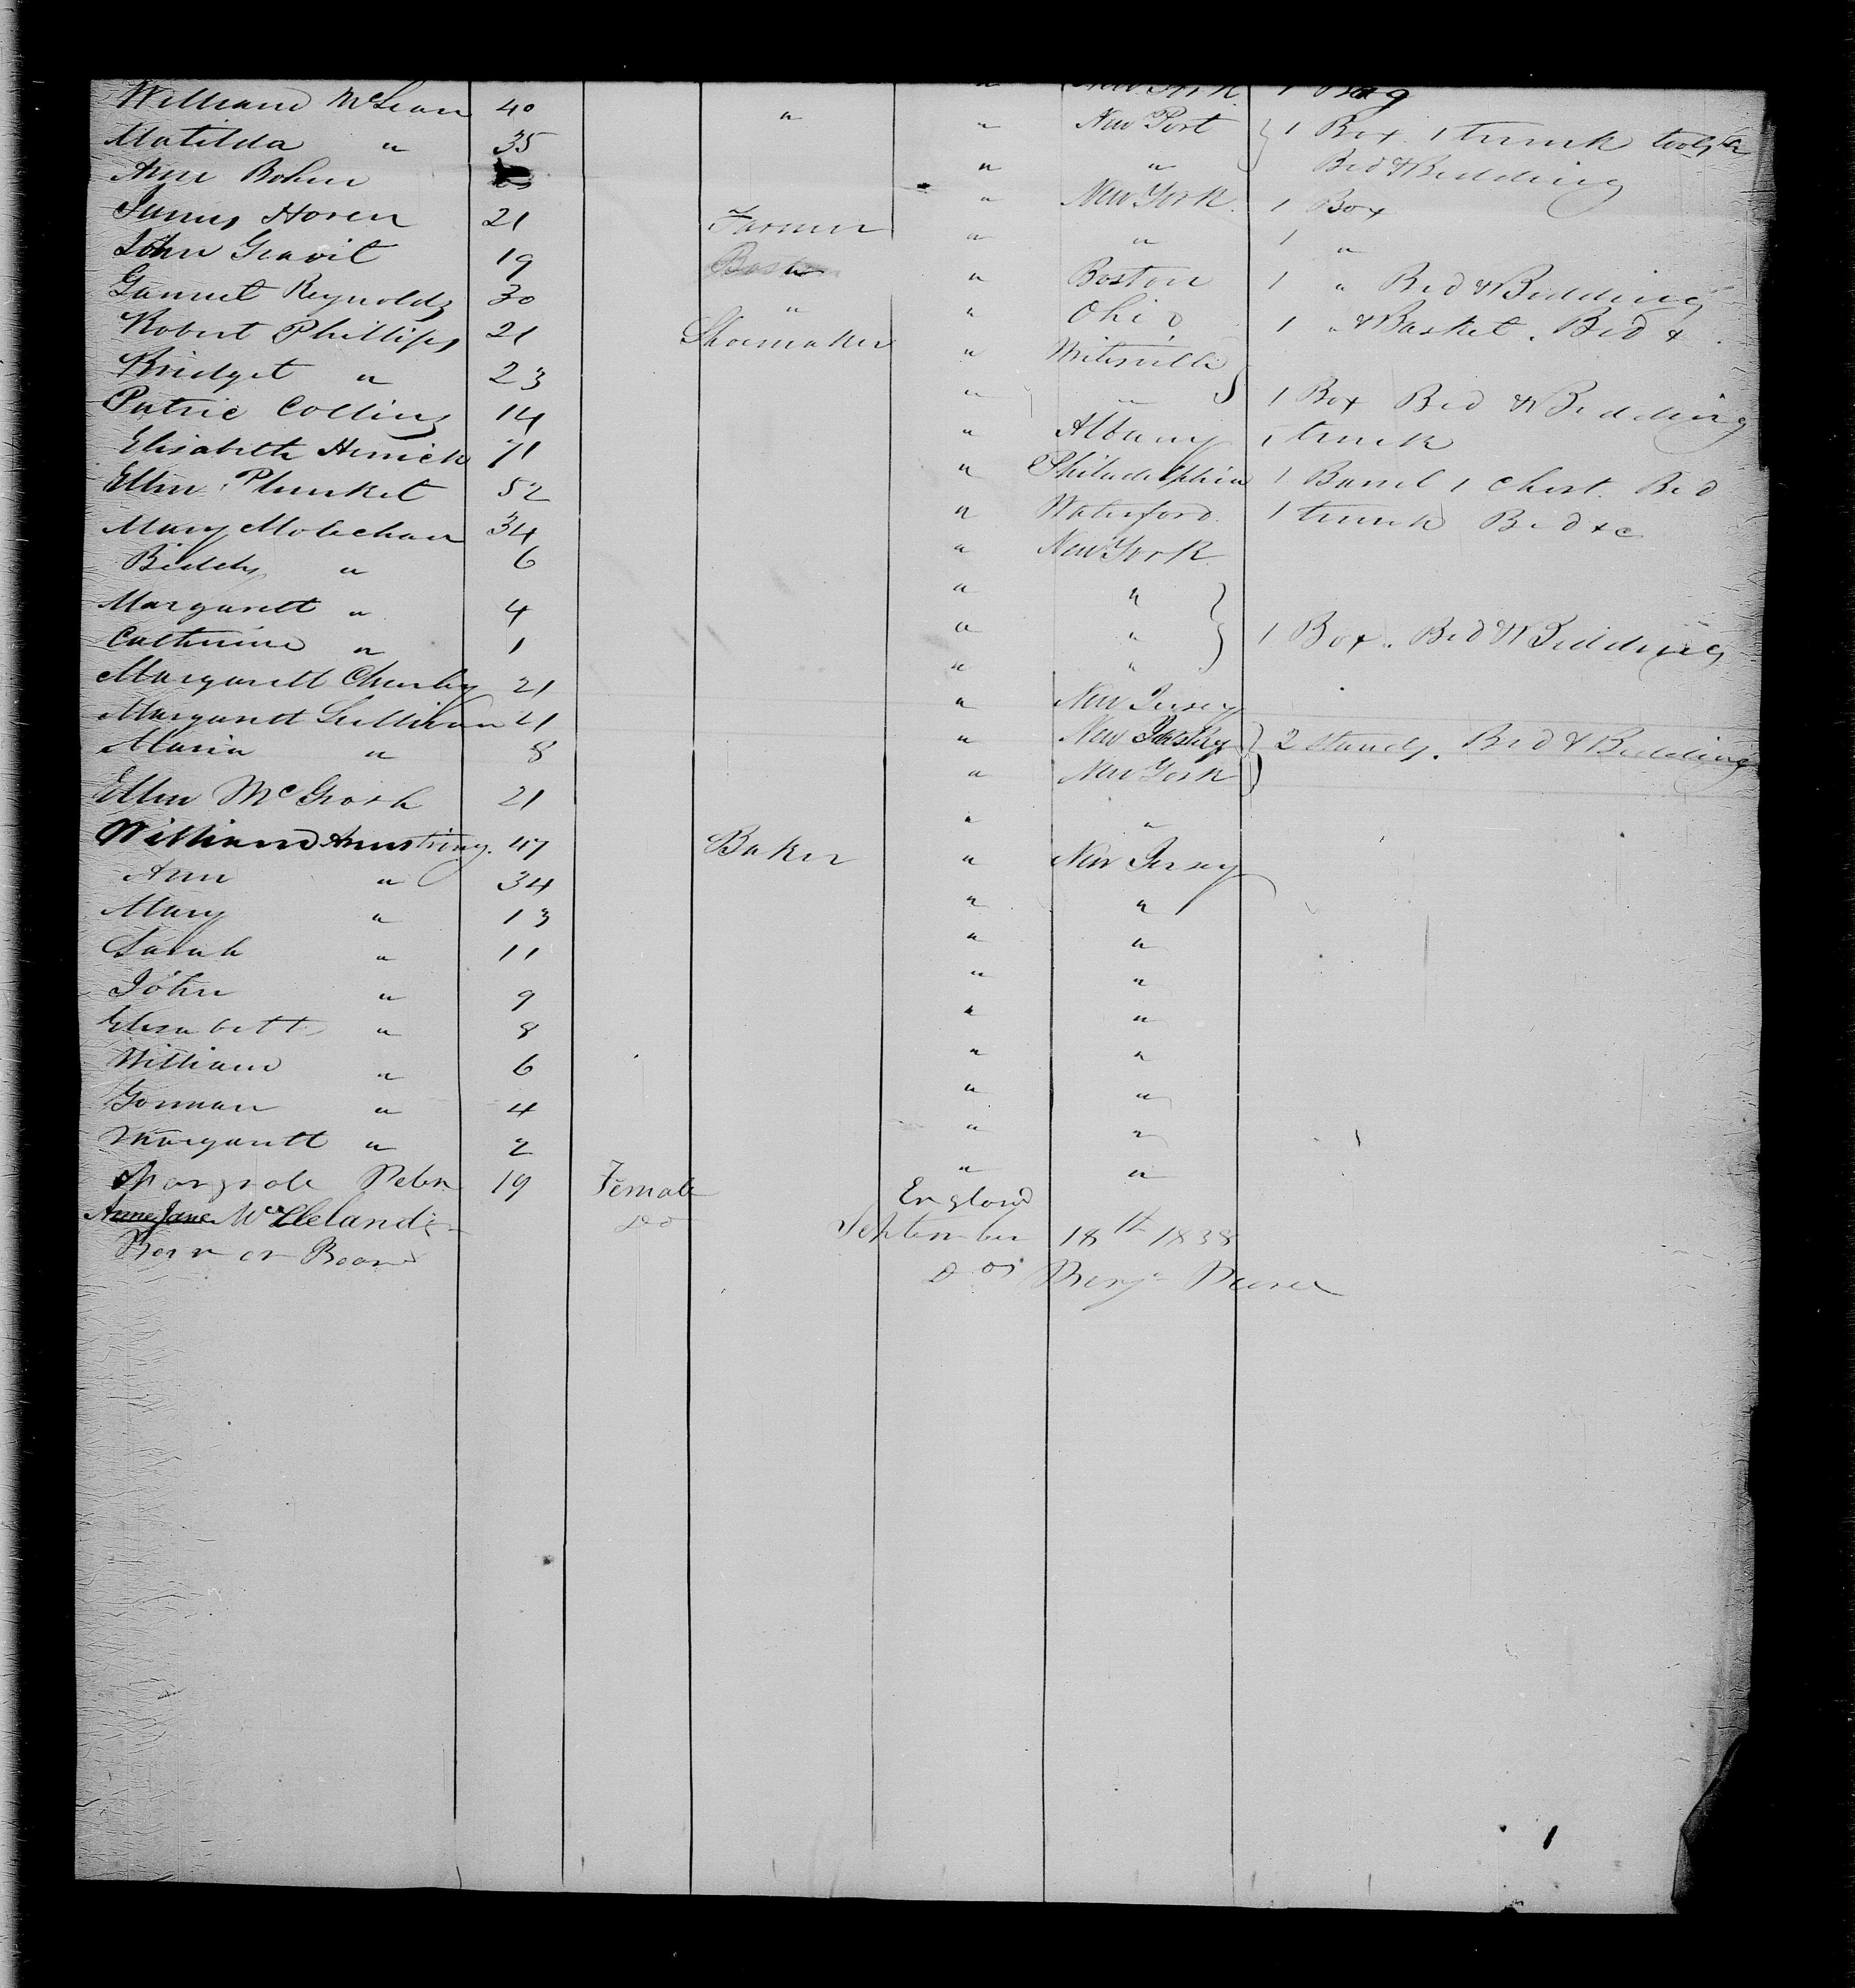 New York 1 Bag
William McLean 40 " " New Port 1 Box 1 trunk tools &
Matilda " 35 " " Bed & Bedding
Ann Bohen " New York 1 Box
James Horen 21 Farmer " " 1 "
John Gravit 19 " Boston 1 " Bed & Bedding
Samuel Reynolds 30 " " Ohio 1 " & Basket. Bed &
Robert Phillips 21 Shoemaker "
Bridget " 23 " " 1 Box Bed & Bedding
Patric Collins 14 " Albany 1 trunk
Elisabeth 71 " Philadelphia 1 Barrel 1 Chest. Bed
Ellen Plunket 52 " Waterford 1 trunk Bed &c
Mary 34 " New York
Biddy " 6 " "
Margarett " 4 " " 1 Box. Bed & Bedding
Catherine " 1 " "
Margarett 21 " New Jersey
Margarett Sullivan 21 " New 2 Stands. Bed & Bedding
Maria " 8 " New York
Ellen McGrath 21 " "
William Armstrong. 47 Baker " New Jersey
Ann " 34 " "
Mary " 13 " "
Sarah " 11 " "
John " 9 " "
Elisabett " 8 " "
William " 6 " "
Gorman " 4 " "
Margarett " 2 " "
19 Female England
Anne Jane McCleland Do September 18th 1838
Born on Board
Benj